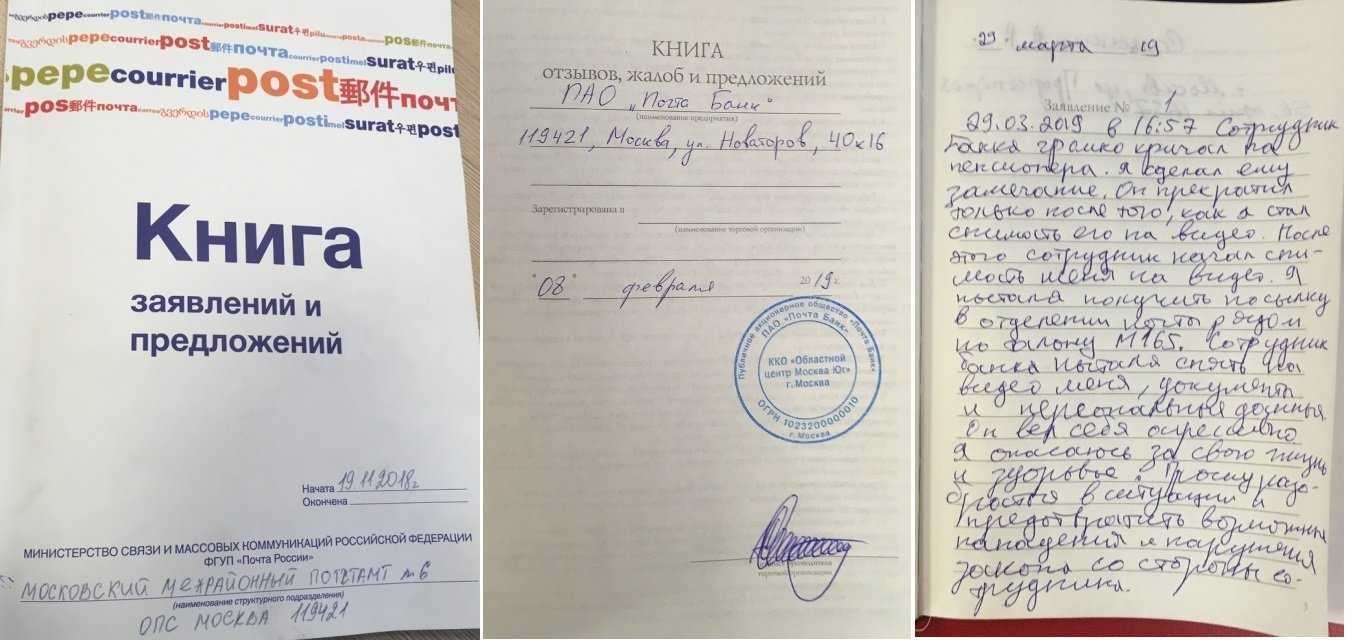 pepe courrier post 郵件 почта surat 우편
გვერდის pepe courrier post 郵件 почта courrier postimol surat 우편
pepe courrier post 郵件 почт
pos 郵件 почта გვერდის pepe courrier postimol surat 우편 post
Книга
заявлений и
предложений
Начата 19.11.2018г.
Окончена
МИНИСТЕРСТВО СВЯЗИ И МАССОВЫХ КОММУНИКАЦИЙ РОССИЙСКОЙ ФЕДЕРАЦИИ
ФГУП «Почта России»
МОСКОВСКИЙ МЕЖРАЙОННЫЙ ПОЧТАМТ №6
(наименование структурного подразделения)
ОПС МОСКВА 119421
КНИГА
отзывов, жалоб и предложений
ПАО „Почта Банк"
(наименование предприятия)
119421, Москва, ул. Новаторов, 40к16
Зарегистрирована в
(наименование торговой организации)
"08" февраля 2019 г.
Публичное акционерное общество «Почта Банк»
ПАО «Почта Банк»
ККО «Областной
центр Москва Юг»
г. Москва
ОГРН 1023200000010
г. Москва
руководителя
торговой организации
29 марта 19
Заявление № 1
29.03.2019 в 16:57 Сотрудник
банка громко кричал на
пенсионера. Я сделал ему
замечание. Он прекратил
только после того, как я стал
снимость его на видео. После
этого сотрудник начал сни-
мость меня на видео. Я
пытался получить посылку
в отделении почты рядом
по талону М165. Сотрудник
банка пытался снять на
видео меня, документы
и персональные данные
Он вел себя агрессивно
Я опасаюсь за свою жизнь
и здоровье. Прошу разо-
браться в ситуации и
предотвратить возможные
нападения и нарушения
закона со стороны со-
трудника.
3